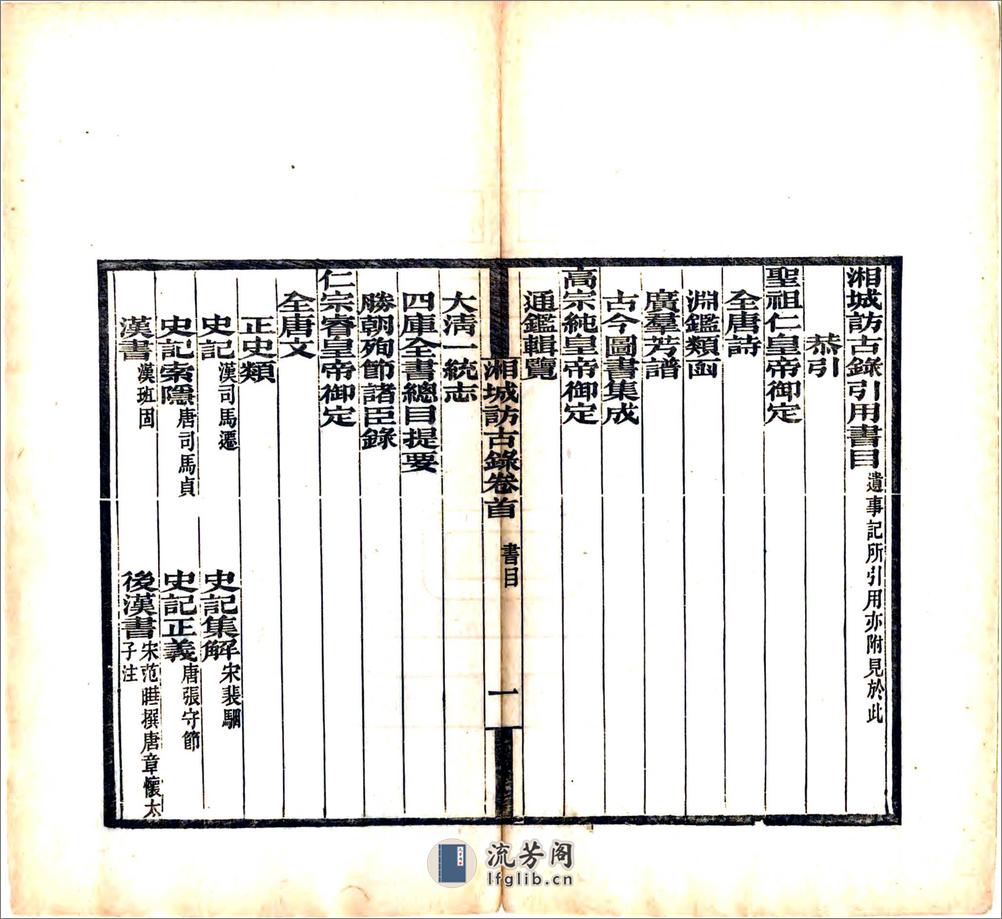 湘城訪古錄引用書目遺事記所引用亦附見於此
恭引
聖祖仁皇帝御定
全唐詩
淵鑑類函
廣羣芳譜
古今圖書集成
高宗純皇帝御定
通鑑輯覽
湘城訪古錄卷首 書目 一
大淸一統志
四庫全書總目提要
勝朝殉節諸臣錄
仁宗睿皇帝御定
全唐文
正史類
史記漢司馬遷 史記集解宋裴駰
史記索隱唐司馬貞 史記正義唐張守節
漢書漢班固 後漢書宋范曄撰唐章懷太子注
流芳阁
lfglib.cn